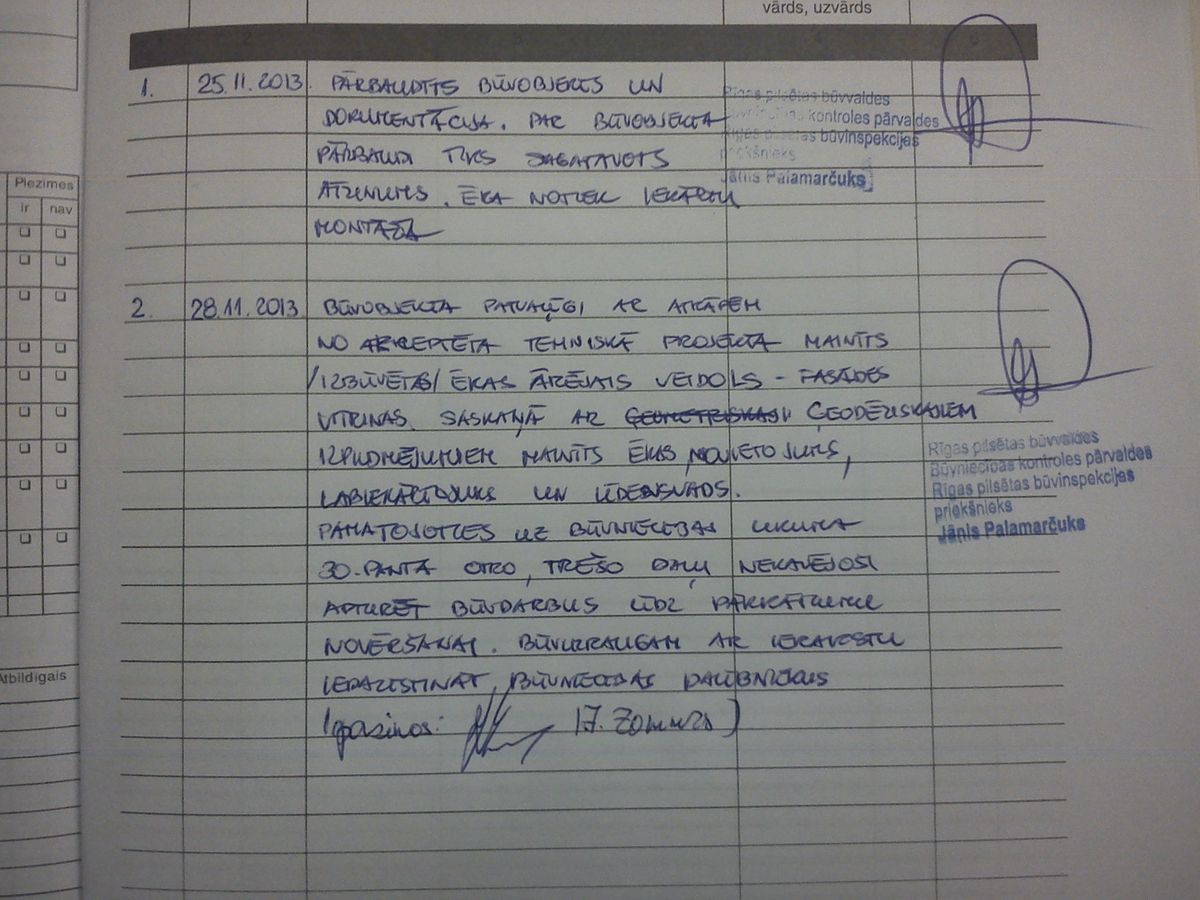 vārds, uzvārds
1 2 3 4 5
Piezīmes
ir nav
Atbildīgais
1. 25.11.2013. PĀRBAUDĪTS BŪVOBJEKTS UN
DOKUMENTĀCIJA. PAR BŪVOBJEKTA
PĀRBAUDI TIKS SAGATAVOTS
ATZINUMS. ĒKĀ NOTIEK IEKĀRTU
MONTĀŽA
Rīgas pilsētas būvvaldes
Būvniecības kontroles pārvaldes
Rīgas pilsētas būvinspekcijas
priekšnieks
Jānis Palamarčuks
2. 28.11.2013 BŪVOBJEKTĀ PATVAĻĪGI AR ATKĀPĒM
NO AKCEPTĒTA TEHNISKĀ PROJEKTA MAINĪTS
/IZBŪVĒTAS/ ĒKAS ĀRĒJAIS VEIDOLS - FASĀDES
VITRĪNAS. SASKAŅĀ AR ĢEODĒZISKAJIEM
IZPILDMĒJUMIEM MAINĪTS ĒKAS NOVIETOJUMS,
LABIEKĀRTOJUMS UN ŪDENSVADS.
PAMATOJOTIES UZ BŪVNIECĪBAS LIKUMA
30. PANTA OTRO, TREŠO DAĻU NEKAVĒJOŠI
APTURĒT BŪVDARBUS LĪDZ PĀRKĀPUMU
NOVĒRŠANAI. BŪVUZRAUGAM AR IERAKSTU
IEPAZĪSTINĀT BŪVNIECĪBAS DALĪBNIEKUS
Rīgas pilsētas būvvaldes
Būvniecības kontroles pārvaldes
Rīgas pilsētas būvinspekcijas
priekšnieks
Jānis Palamarčuks